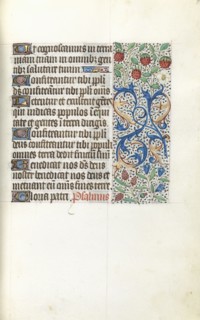 Ut cognoscamus in terra
viam tuam in omnibz gen
tibz salutare tuum
Confiteantur tibi ppli
deus confiteantur tibi ppli oms
Letentur et exultent gētes
qm iudicas populos ī equi
tate et gentes ī terra dirigis
Confiteantur tibi ppli
deus confiteantur tibi populi
omnes terra dedit fructū suū
Benedicat nos ds deus
noster benedicat nos deus et
metuant eū oms fines terre
Gloria patri Psalmus